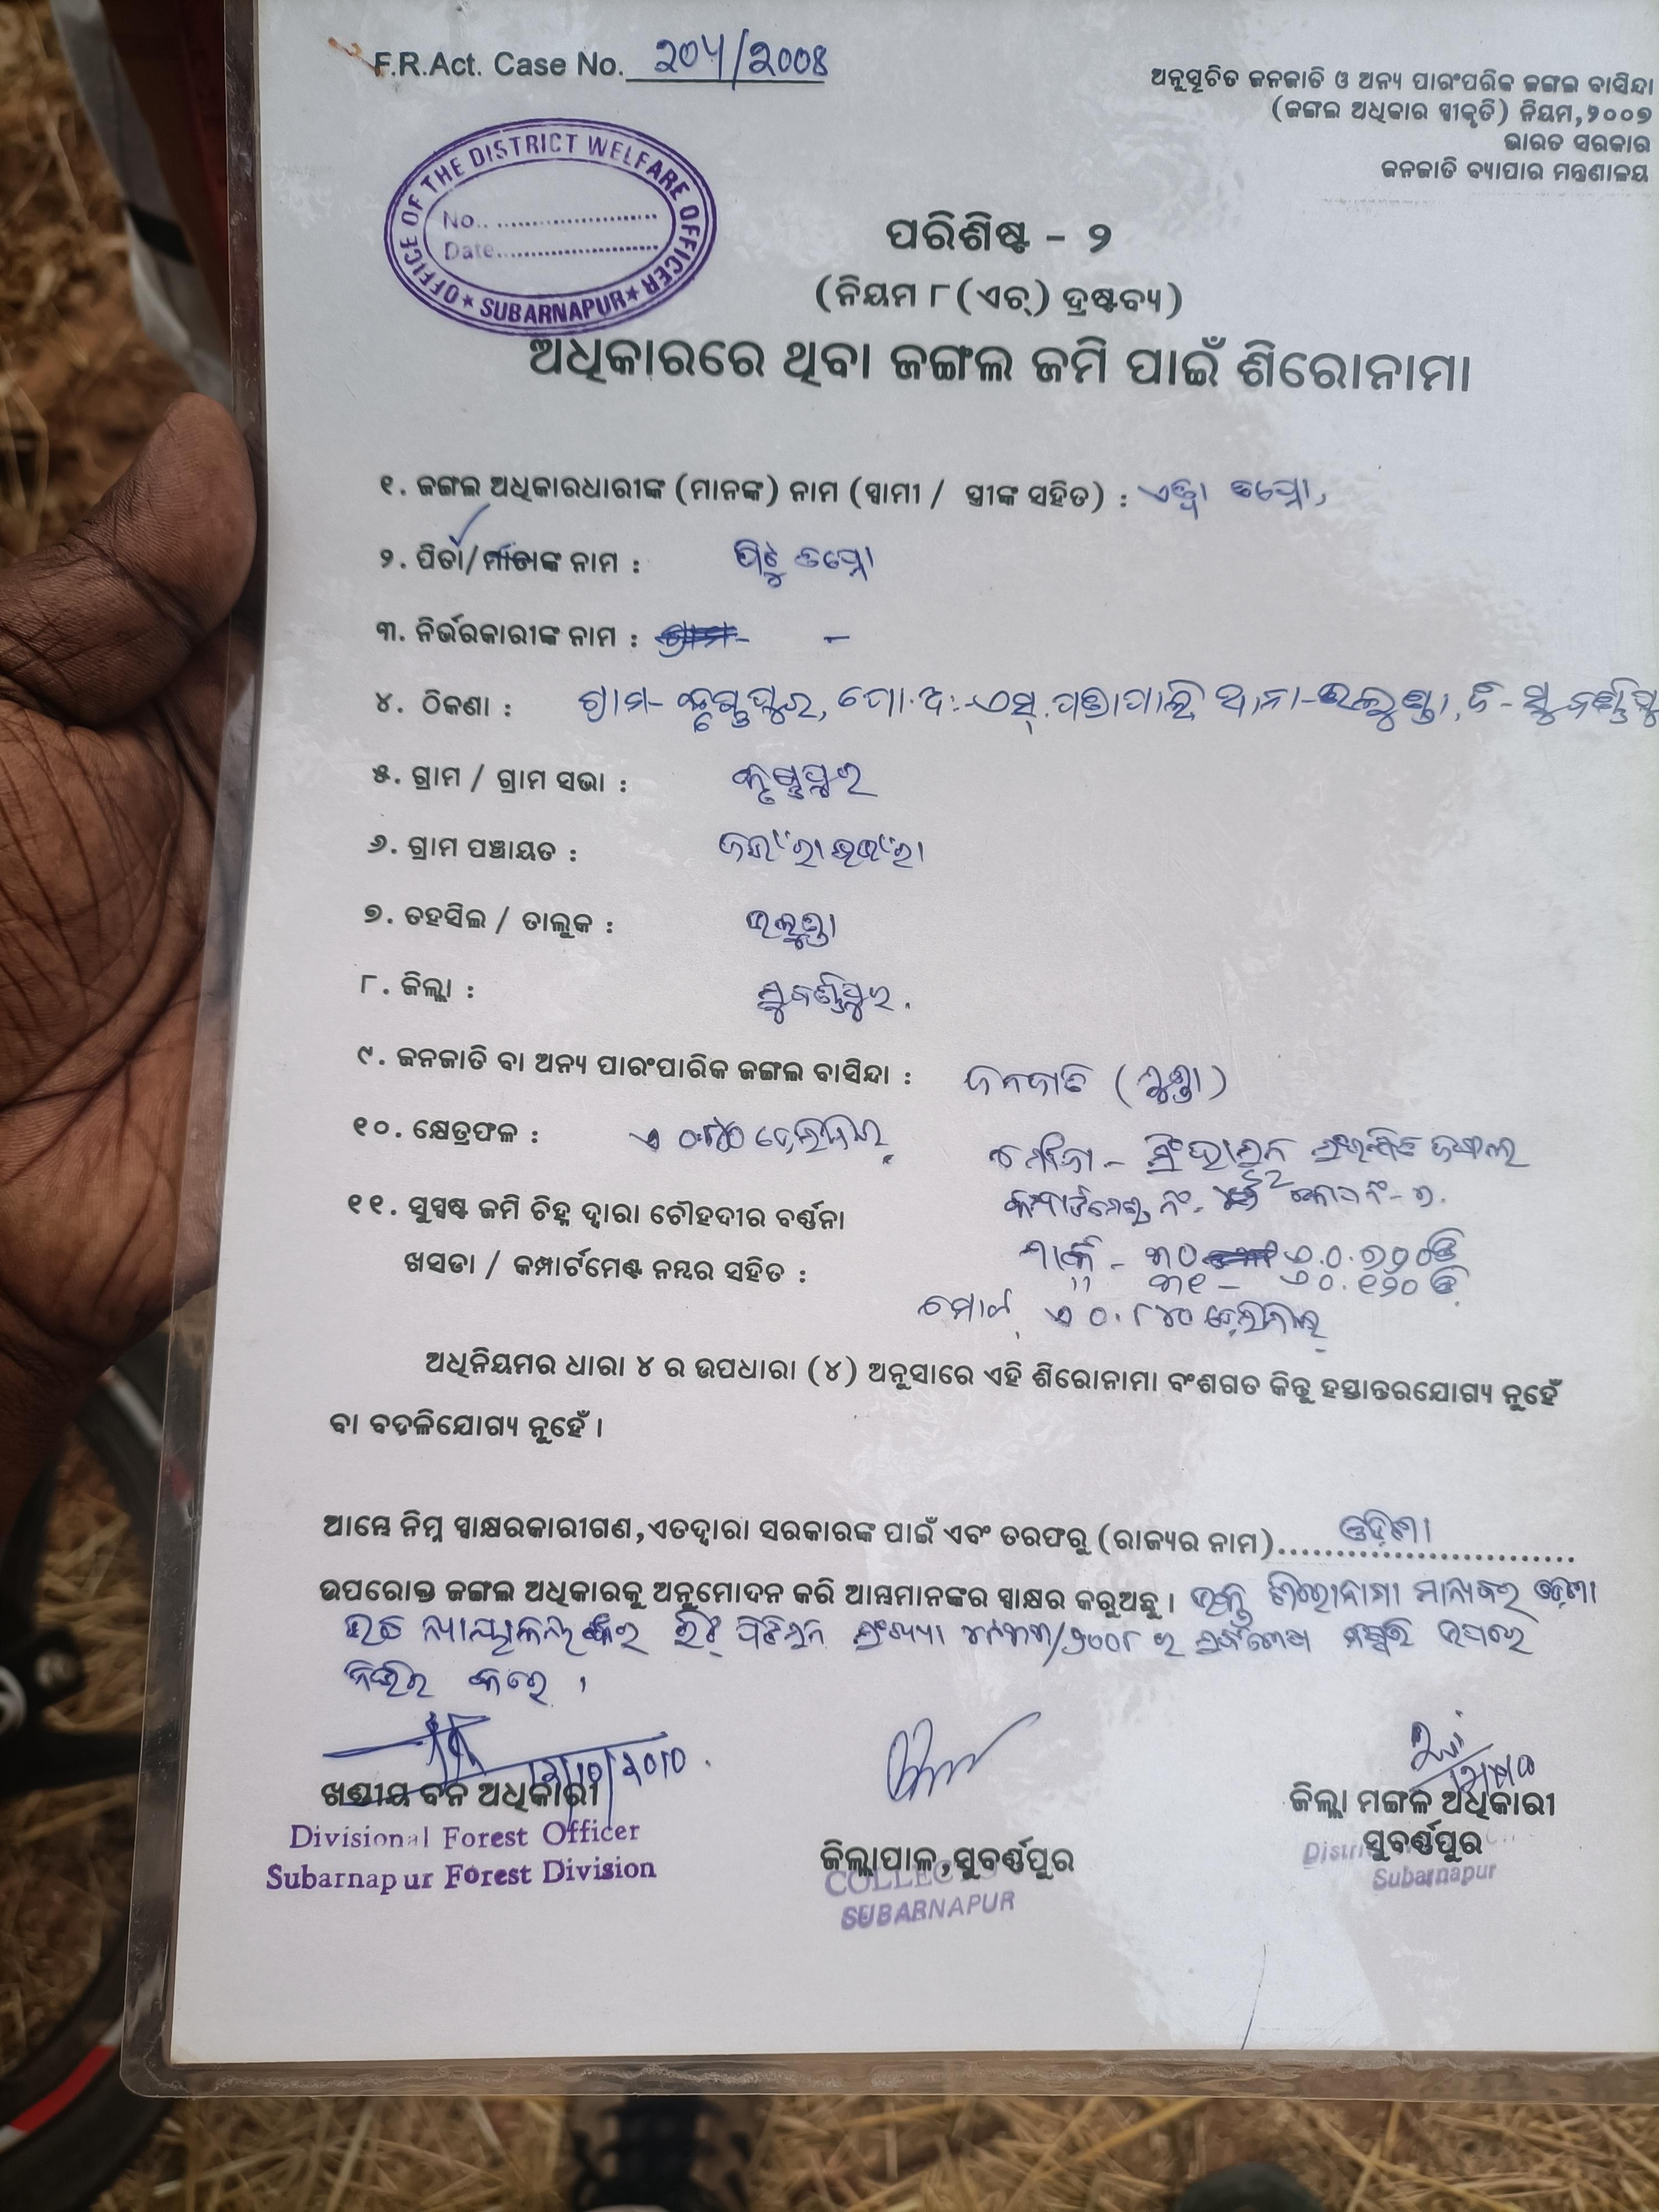 F.R.Act. Case No. 204/2008
ଅନୁସୂଚିତ ଜନଜାତି ଓ ଅନ୍ୟ ପାରଂପରିକ ଜଙ୍ଗଲ ବାସିନ୍ଦା
(ଜଙ୍ଗଲ ଅଧିକାର ସ୍ୱୀକୃତି) ନିୟମ,୨୦୦୭
ଭାରତ ସରକାର
ଜନଜାତି ବ୍ୟାପାର ମନ୍ତ୍ରଣାଳୟ
OFFICE OF THE DISTRICT WELFARE OFFICER
No.
Date
★ SUBARNAPUR ★
ପରିଶିଷ୍ଟ - ୨
(ନିୟମ ୮(ଏଚ୍) ଦ୍ରଷ୍ଟବ୍ୟ)
ଅଧିକାରରେ ଥିବା ଜଙ୍ଗଲ ଜମି ପାଇଁ ଶିରୋନାମା
୧. ଜଙ୍ଗଲ ଅଧିକାରଧାରୀଙ୍କ (ମାନଙ୍କ) ନାମ (ସ୍ୱାମୀ / ସ୍ତ୍ରୀଙ୍କ ସହିତ) :
୨. ପିତା/ମାତାଙ୍କ ନାମ :
୩. ନିର୍ଭରକାରୀଙ୍କ ନାମ : -
୪. ଠିକଣା : ଗ୍ରାମ- କୃଷ୍ଣପୁର, ପୋ.ଅ.-ଏସ୍.ପଣ୍ଡାପାଲି ଥାନା-ଉଲୁଣ୍ଡା, ଜି-
୫. ଗ୍ରାମ / ଗ୍ରାମ ସଭା : କୃଷ୍ଣପୁର
୬. ଗ୍ରାମ ପଞ୍ଚାୟତ :
୭. ତହସିଲ / ତାଲୁକ : ଉଲୁଣ୍ଡା
୮. ଜିଲ୍ଲା : ସୁବର୍ଣ୍ଣପୁର.
୯. ଜନଜାତି ବା ଅନ୍ୟ ପାରଂପାରିକ ଜଙ୍ଗଲ ବାସିନ୍ଦା : ଜନଜାତି (ମୁଣ୍ଡା)
୧୦. କ୍ଷେତ୍ରଫଳ : ଏ ୦.୮୪୦ ଡେସିମିଲ୍
ମୌଜା -
୧୧. ସୁସ୍ପଷ୍ଟ ଜମି ଚିହ୍ନ ଦ୍ୱାରା ଚୌହଦୀର ବର୍ଣ୍ଣନା
ଖସଡା / କମ୍ପାର୍ଟମେଣ୍ଟ ନମ୍ବର ସହିତ :
ପ୍ଲଟ - ୩୦ ଏ.୦.୭୨୦ଡି
" ୩୧ - ଏ ୦.୧୨୦ ଡି
ମୋଟ ଏ ୦.୮୪୦ ଡେସିମିଲ୍
ଅଧିନିୟମର ଧାରା ୪ ର ଉପଧାରା (୪) ଅନୁସାରେ ଏହି ଶିରୋନାମା ବଂଶଗତ କିନ୍ତୁ ହସ୍ତାନ୍ତରଯୋଗ୍ୟ ନୁହେଁ
ବା ବଦଳିଯୋଗ୍ୟ ନୁହେଁ ।
ଆମ୍ଭେ ନିମ୍ନ ସ୍ୱାକ୍ଷରକାରୀଗଣ,ଏତଦ୍ୱାରା ସରକାରଙ୍କ ପାଇଁ ଏବଂ ତରଫରୁ (ରାଜ୍ୟର ନାମ) ଓଡ଼ିଶା
ଉପରୋକ୍ତ ଜଙ୍ଗଲ ଅଧିକାରକୁ ଅନୁମୋଦନ କରି ଆମ୍ଭମାନଙ୍କର ସ୍ୱାକ୍ଷର କରୁଅଛୁ । ଉକ୍ତ ଶିରୋନାମା ମାନ୍ୟବର ଓଡ଼ିଶା
ଉଚ୍ଚ ନ୍ୟାୟାଳୟଙ୍କର ରିଟ୍ ପିଟିସନ ସଂଖ୍ୟା ୪୯୩୩/୨୦୦୮ ର ସର୍ବଶେଷ ମଞ୍ଜୁରି ଉପରେ
ନିର୍ଭର କରେ ।
12/10/2010
ଖଣ୍ଡୀୟ ବନ ଅଧିକାରୀ
Divisional Forest Officer
Subarnapur Forest Division
ଜିଲ୍ଲାପାଳ,ସୁବର୍ଣ୍ଣପୁର
COLLEC
SUBARNAPUR
ଜିଲ୍ଲା ମଙ୍ଗଳ ଅଧିକାରୀ
ସୁବର୍ଣ୍ଣପୁର
Subarnapur